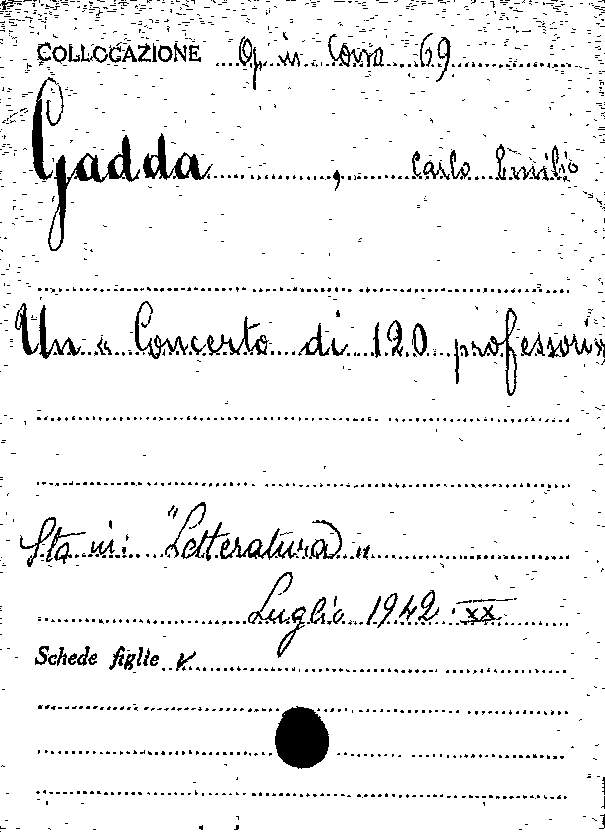 COLLOCAZIONE Op in Cons 69
Gadda, Carlo Emilio
Un « Concerto di 120 professori»
Sta in: "Letteratura"
Luglio 1942.XX
Schede figlie v